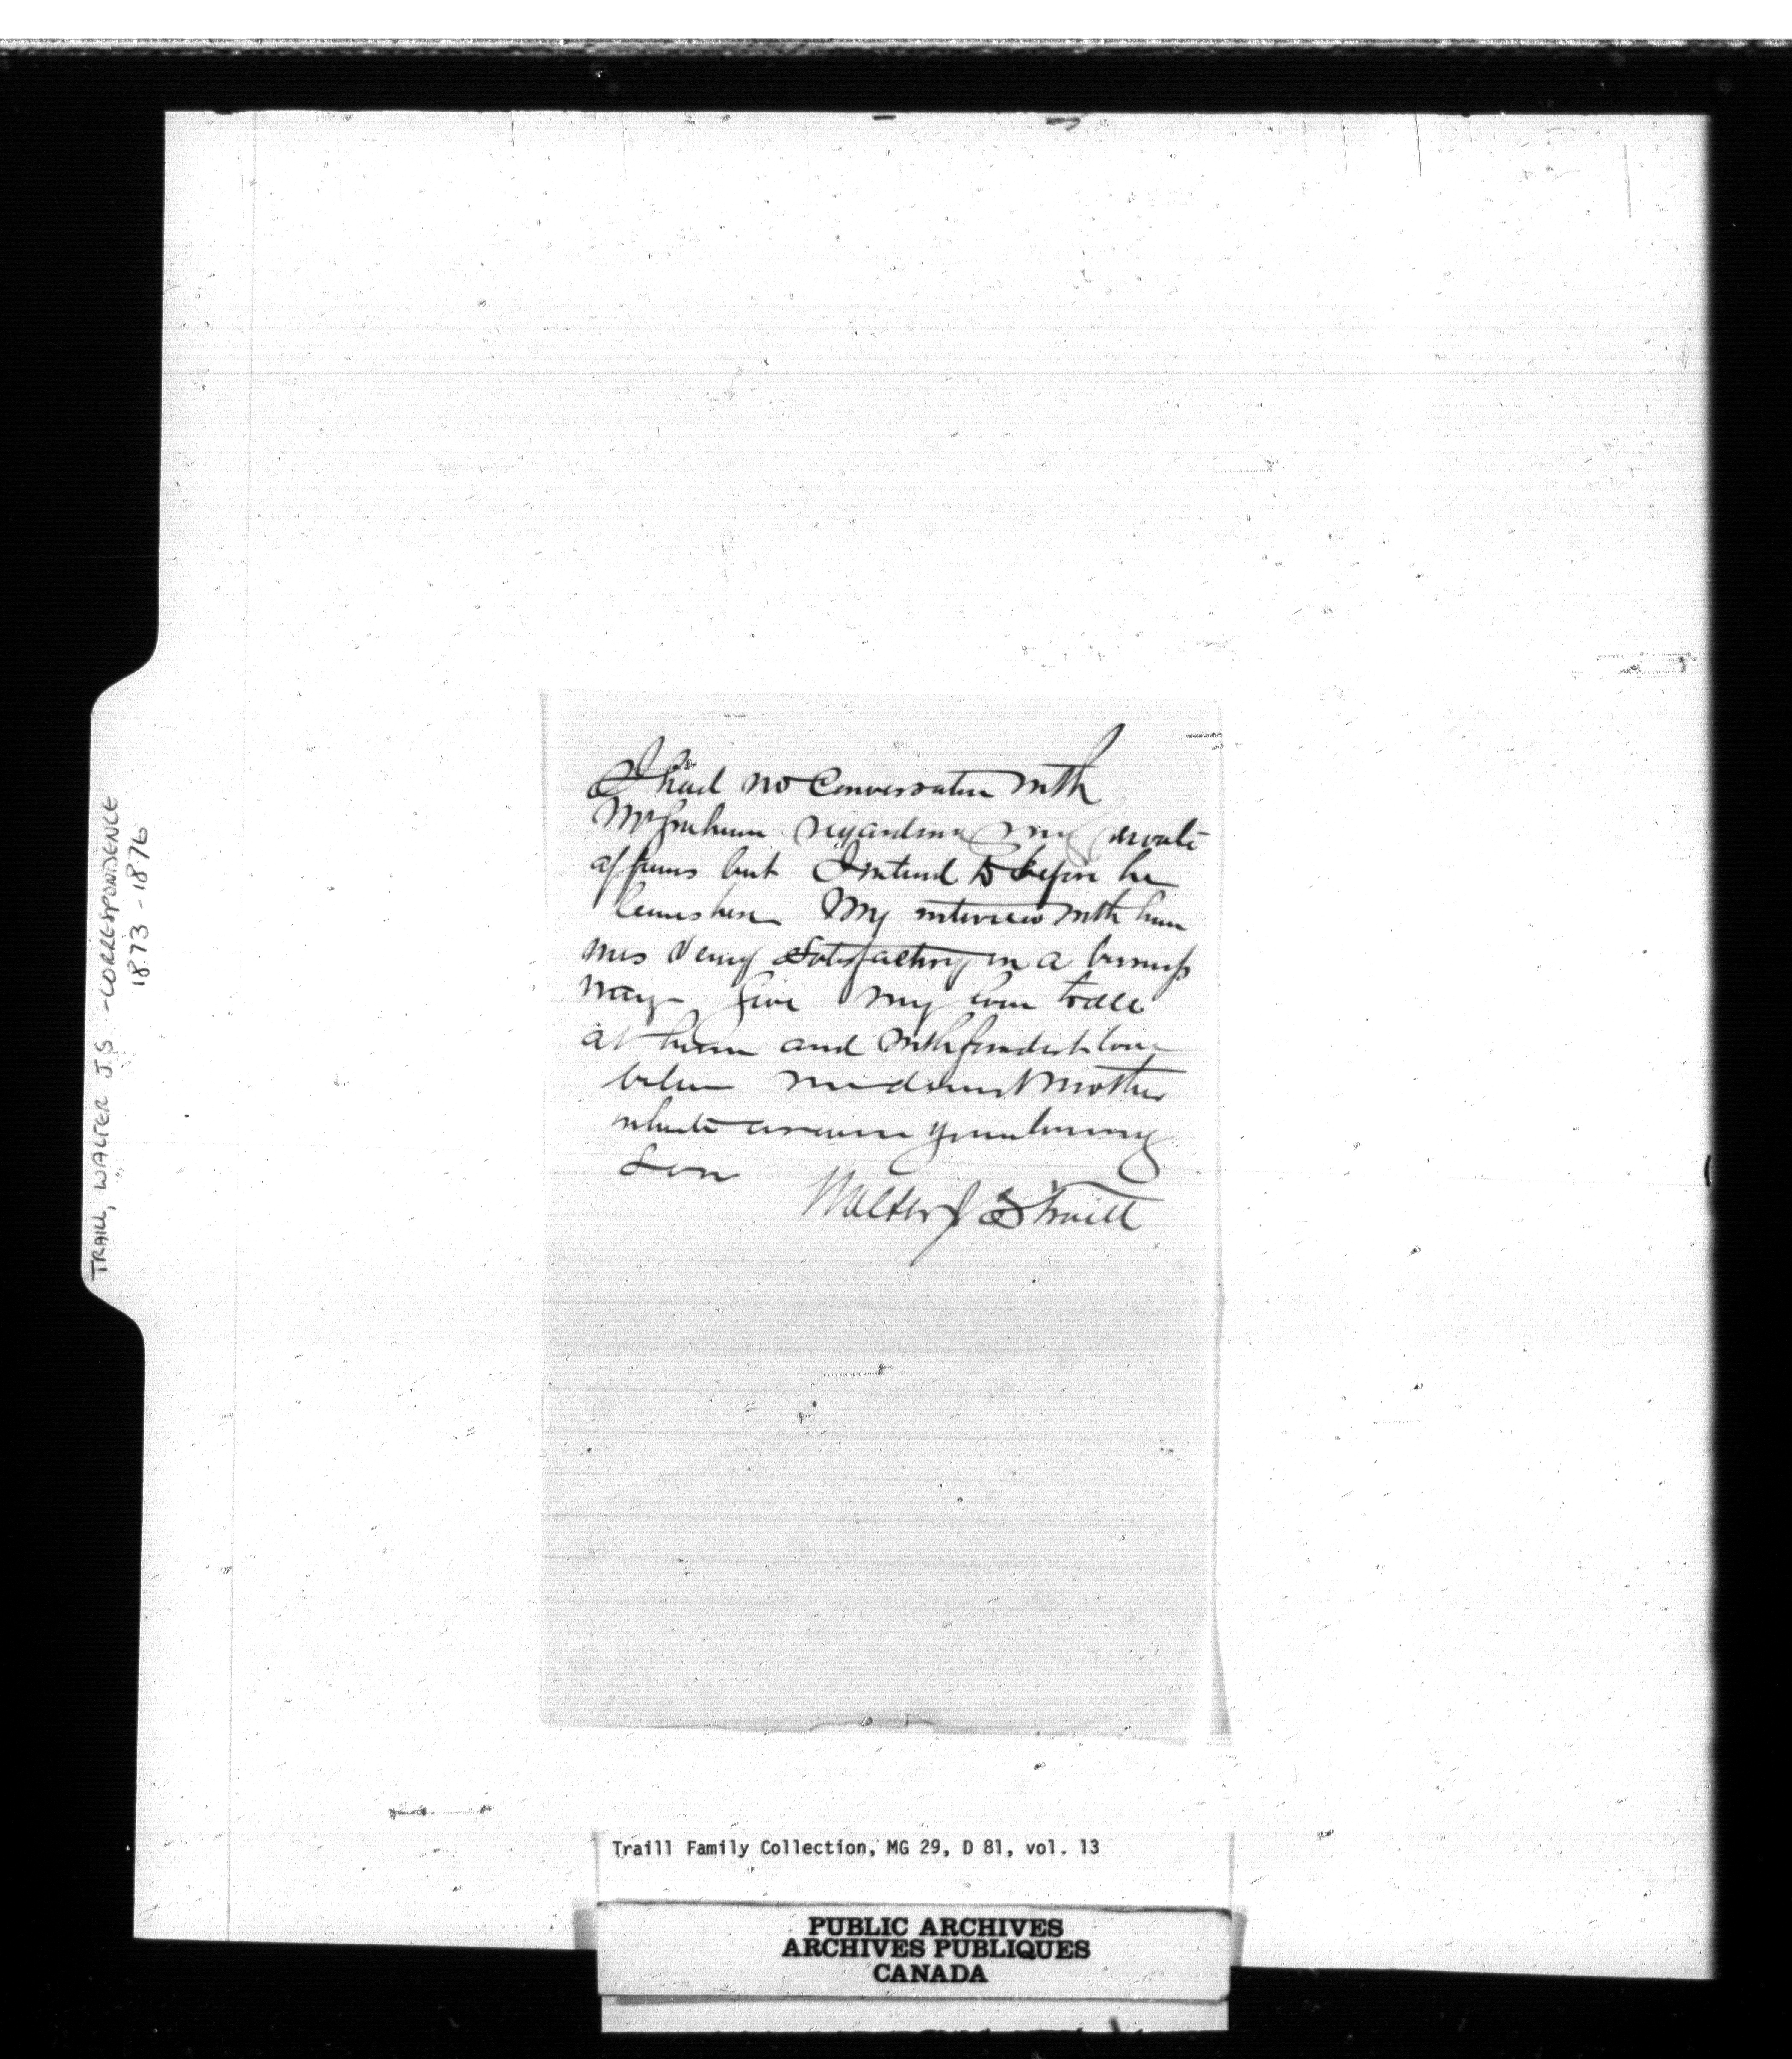 I had no Conversation with
Mr Grahame regarding my private
affairs but I intend to before he
leaves here My interview with him
was very satisfactory in a business
way Give my love to all
at home and with fondest love
believe me dearest Mother
your loving
Son
Walter J S Traill
TRAILL, WALTER J.S - CORRESPONDENCE
1873 - 1876
Traill Family Collection, MG 29, D 81, vol. 13
PUBLIC ARCHIVES
ARCHIVES PUBLIQUES
CANADA